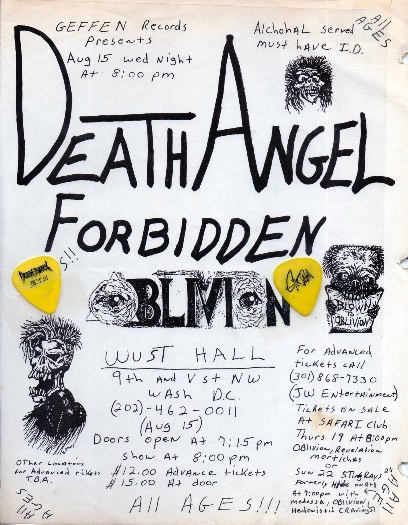 GEFFEN Records
Presents
Aug 15 wed Night
At 8:00 pm
AlchohAL served
must have I.D.
All
AGES
DEATH ANGEL
FORBIDDEN
S!!!
OBLIVION
BLOWN
Oblivion
WUST HALL
9th AND V st NW
WASH D.C.
(202)-462-0011
(Aug 15)
Doors open At 7:15 pm
show At 8:00 pm
$12.00 ADVANCE tickets
$15.00 At door
All AGES!!!
For ADVANCED
tickets CALL
(301)868-7330
(JW Entertainment)
Tickets on SALE
At SAFARI Club
Thurs 19 At 8:00pm
Oblivion, Revelation
mortichas
or
Sun 22 StingRays
Formerly
At 9:00pm with
medussa, Oblivion,
Hedonistic CRAvings
Other Locations
For Advanced tickets
T.B.A.
All
AGES
All
AGES